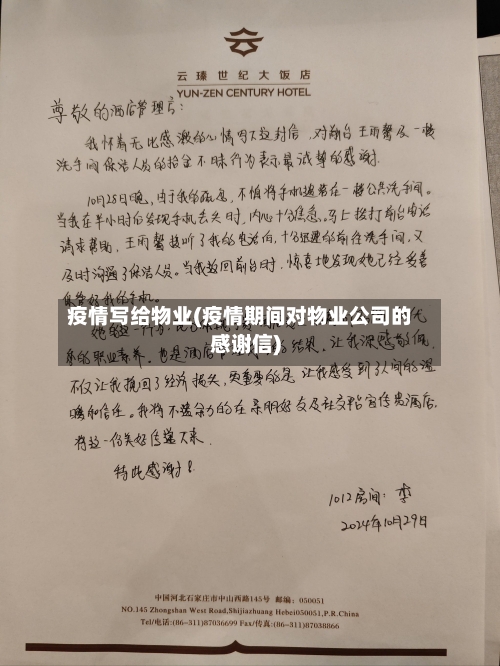 云瑧世纪大饭店
YUN-ZEN CENTURY HOTEL
尊敬的酒店管理层:
我怀着无比感激的心情写下这封信,对前台王雨馨及一楼
洗手间保洁人员的拾金不昧行为表示最诚挚的感谢.
10月28日晚,由于我的疏忽,不慎将手机遗落在一楼公共洗手间。
当我在半小时后发现手机丢失时,内心十分焦急。马上拨打前台电话
请求帮助,王雨馨接听了我的电话后,十分迅速的前往洗手间,又
及时沟通了保洁人员。当我返回前台时,惊喜地发现她已经妥善
保管好我的手机。
疫情写给物业(疫情期间对物业公司的
感谢信)
的职业素养,也是酒店 的结果。让我深感敬佩,
不仅让我挽回了经济损失,更重要的是让我感受到了人间的温
暖和信任。我将不遗余力的在亲朋好友及社交平台宣传贵酒店,
将这一份美好传递下来.
特此感谢!
1012房间:李
2024年10月29日
中国河北石家庄市中山西路145号 邮编:050051
NO.145 Zhongshan West Road,Shijiazhuang Hebei050051,P.R.China
Tel/电话:(86-311)87036699 Fax/传真:(86-311)87038866